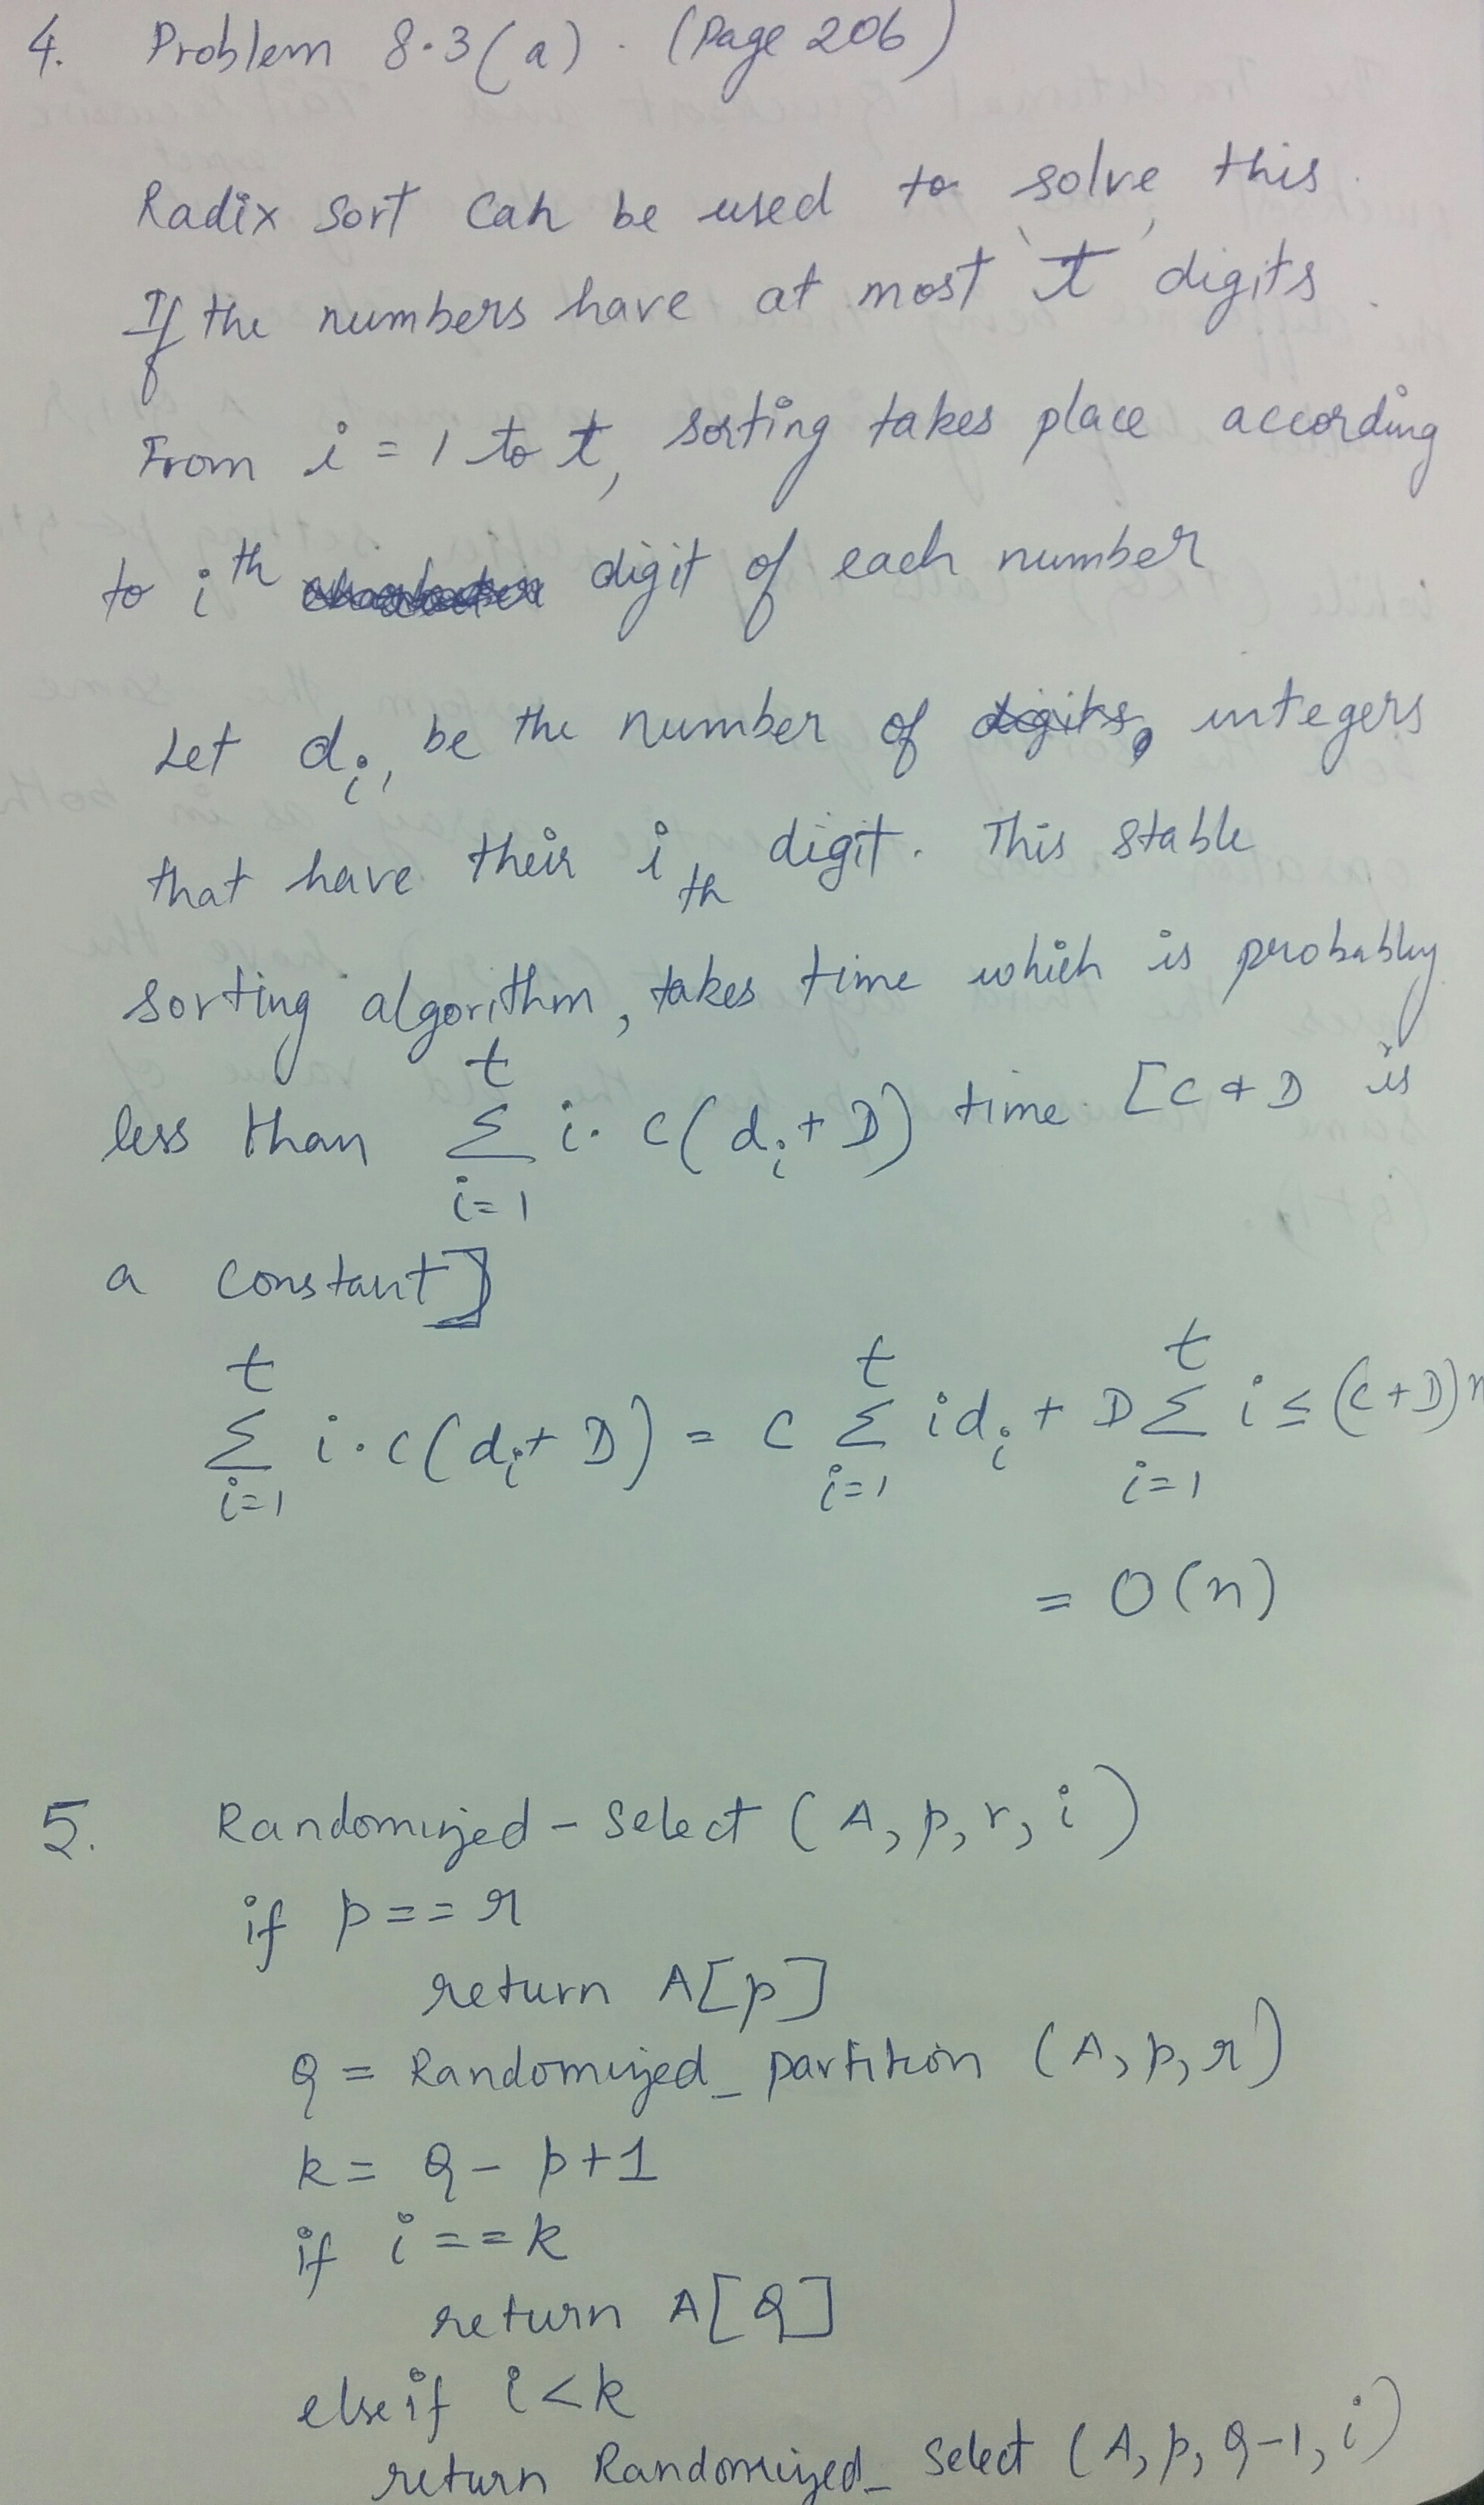 4. Problem 8.3(a). (Page 206)
Radix Sort can be used to solve this.
If the numbers have at most 't' digits.
From i = 1 to t, sorting takes place according
to i th digit of each number
Let di, be the number of digits, integers
that have their i th digit. This stable
sorting algorithm, takes time which is probably
less than t Σ i=1 i. C(di + D) time. [C & D is
a constant]
t Σ i=1 i. C(di + D) = C t Σ i=1 idi + D t Σ i=1 i ≤ (C+D)n
= O(n)
5. Randomized - Select (A, p, r, i)
if p == r
return A[p]
Q = Randomized_partition (A, p, r)
k = Q - p + 1
if i == k
return A[Q]
else if i < k
return Randomized_Select (A, p, Q-1, i)